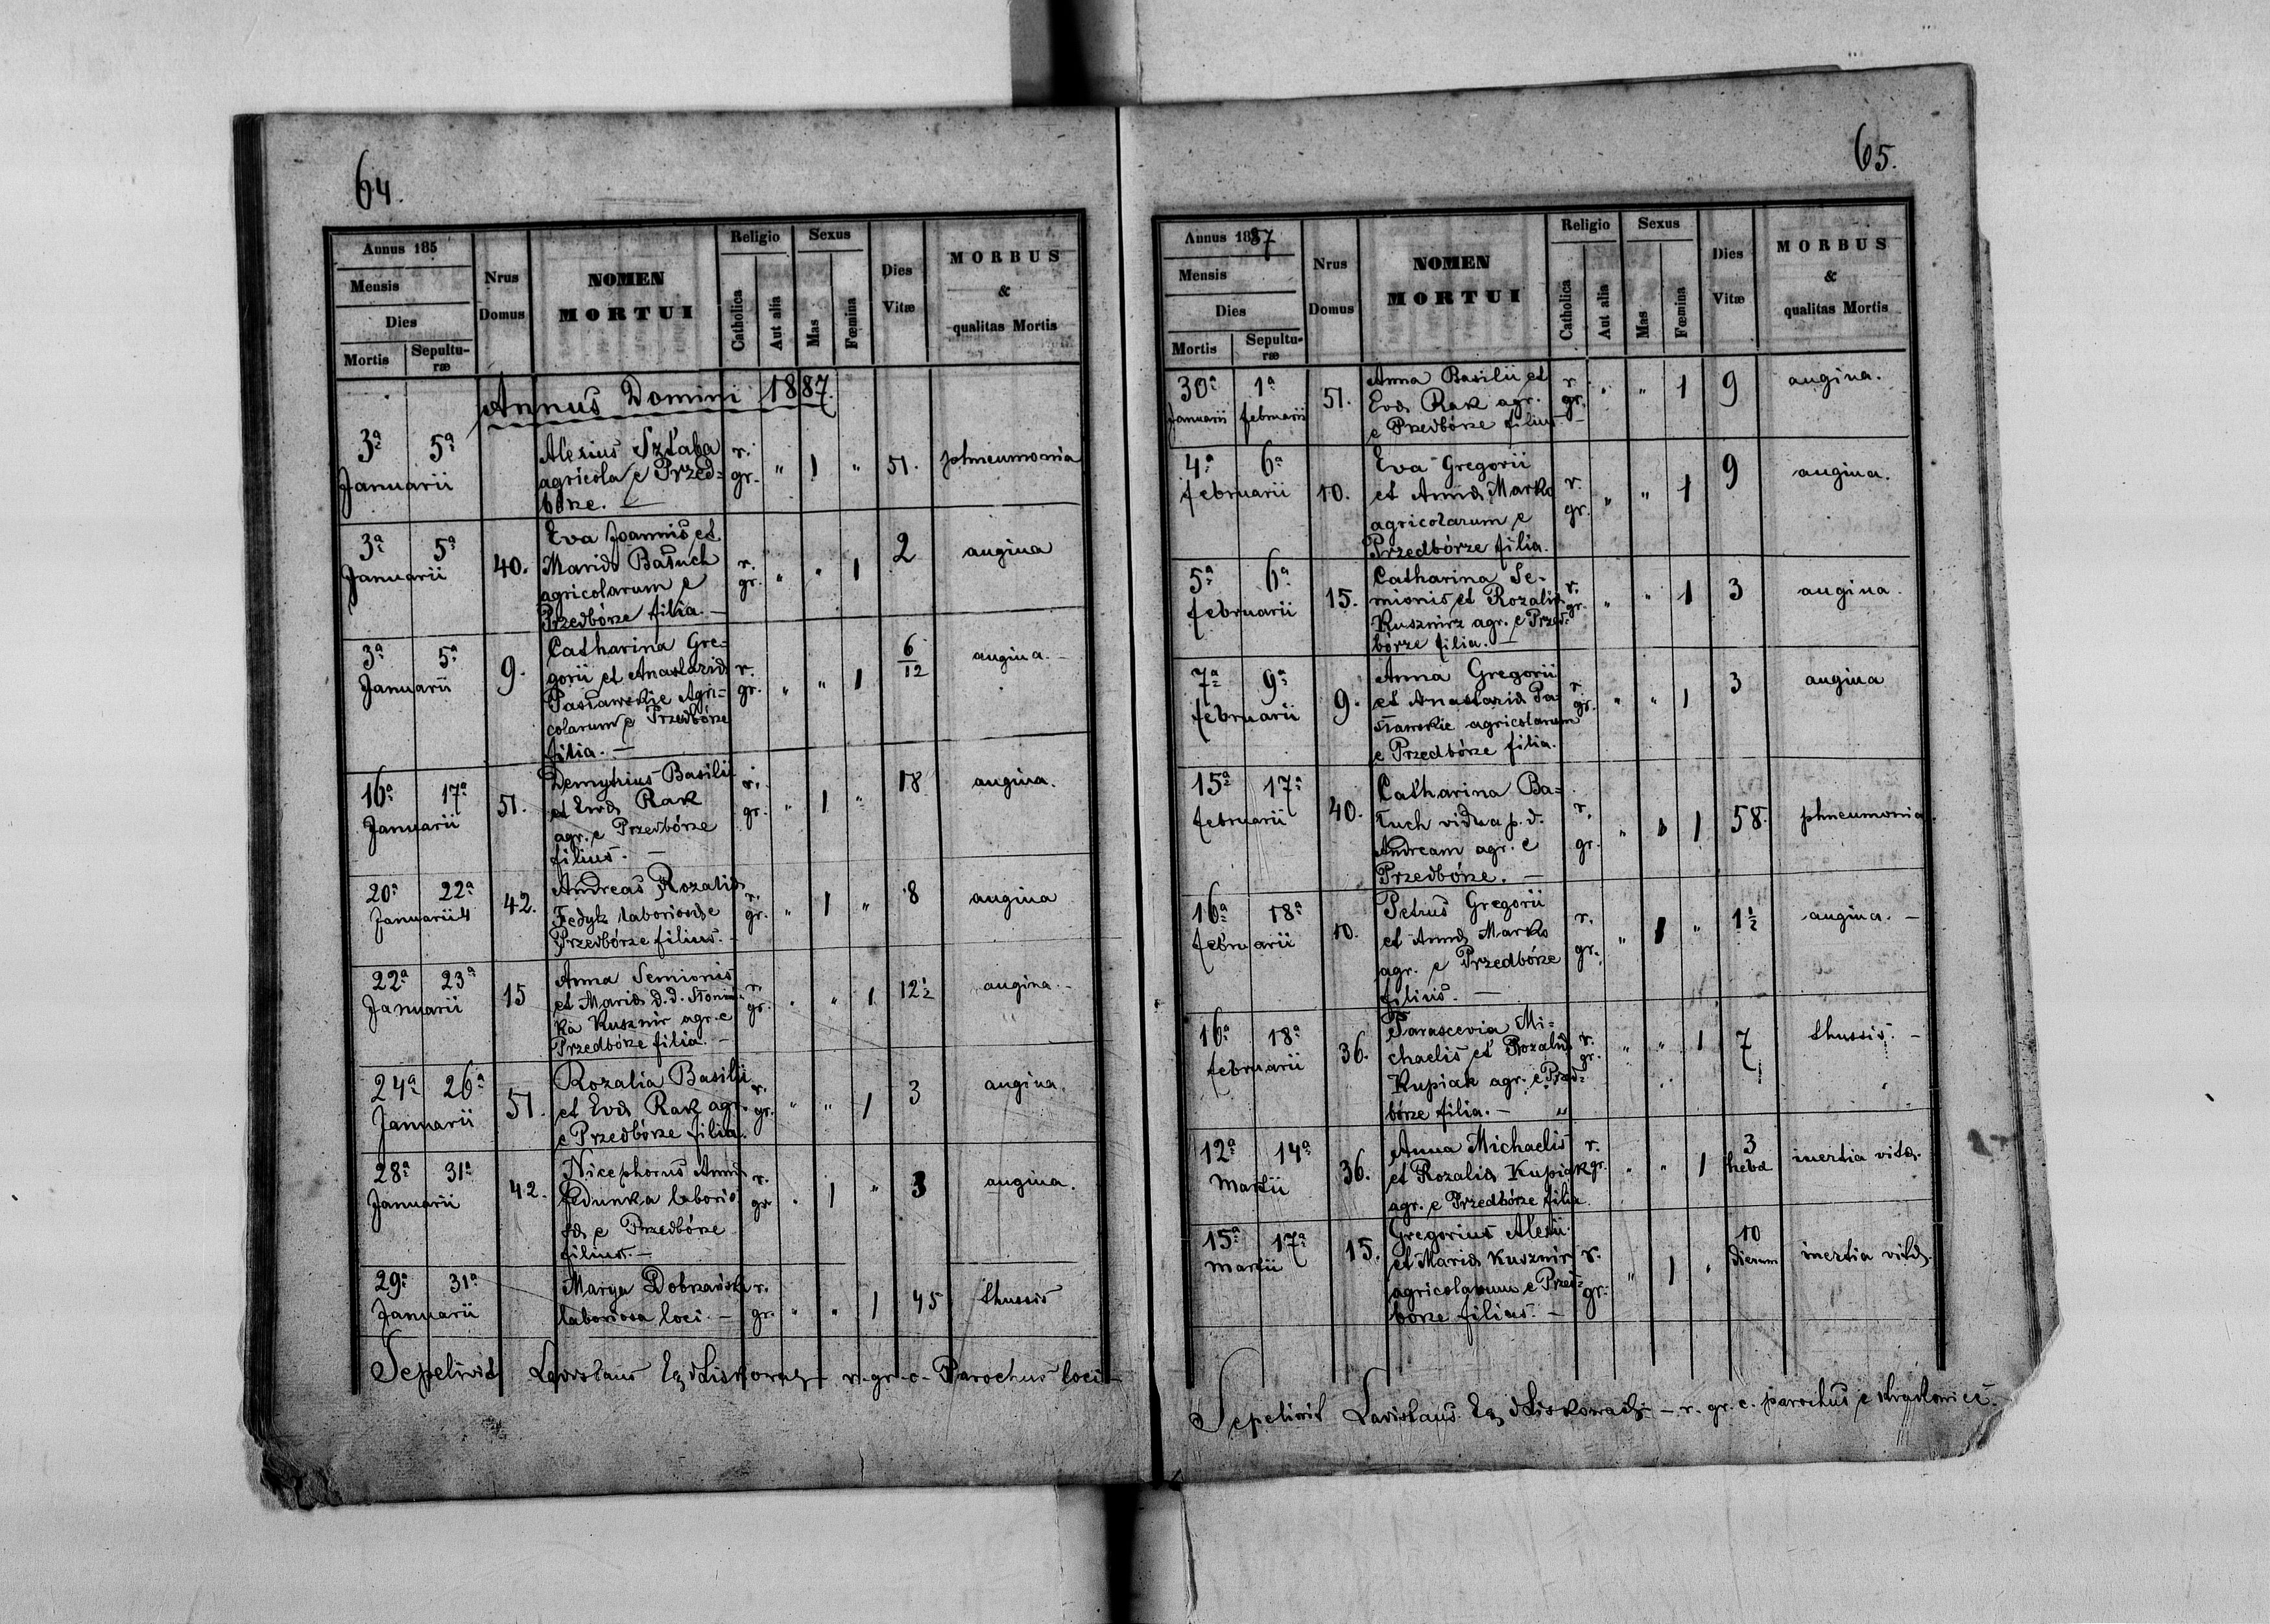 64.
Annus 185
Mensis
Dies
Mortis
Sepultu-
ræ
Nrus
Domus
NOMEN
MORTUI
Religio
Catholica
Aut alia
Sexus
Mas
Fœmina
Dies
Vitæ
MORBUS
&
qualitas Mortis
Annus Domini 1887.
3ª 5ª
Januarii
Alexius Sztaba
agricola e Przed=
bórze. —
r.
gr. " 1 " 51. phneumonia
3ª 5ª
Januarii
40.
Eva Joannis et
Mariæ Bałuch
agricolarum e
Przedbórze filia. —
r.
gr. " " 1 2 angina
3ª 5ª
Januarii
9.
Catharina Gre-
gorii et Anastaziæ
Pasławskie Agri=
colarum e Przedbórze
filia. —
r.
gr. " " 1 6/12 angina. —
16ª 17ª
Januarii
51.
Demytrius Basilii
et Evæ Rak
agr. e Przedbórze
filius. —
r.
gr. " 1 " 18 angina.
20ª 22ª
Januarii
42.
Andreas Rozaliæ
Fedyk laboriosæ e
Przedbórze filius. —
r.
gr. " 1 " 8 angina
22ª 23ª
Januarii
15
Anna Semionis
et Mariæ d. d.
ka Kusznir agr. e
Przedbórze filia. —
r.
gr. " " 1 12½ angina. —
24ª 26ª
Januarii
51.
Rozalia Basilii
et Evæ Rak agr.
e Przedbórze filia.
r.
gr. " " 1 3 angina.
28ª 31ª
Januarii
42.
Nicephorus Annæ
Fedunka laborio
sæ e Przedbórze
filius. —
r.
gr. " 1 " 3 angina.
29ª 31ª
Januarii
Marya Dobrzańska
laboriosa loci. —
r.
gr. " " 1 45 thussis
Sepelivit r. gr. c. Parochus loci —
65.
Annus 1887
Mensis
Dies
Mortis
Sepultu-
ræ
Nrus
Domus
NOMEN
MORTUI
Religio
Catholica
Aut alia
Sexus
Mas
Fœmina
Dies
Vitæ
MORBUS
&
qualitas Mortis
30ª 1ª
Januarii februarii
51.
Anna Basilii et
Evæ Rak agr.
e Przedbórze filius. —
r.
gr. " " 1 9 angina.
4ª 6ª
februarii
10.
Eva Gregorii
et Annæ Marko
agricolarum e
Przedbórze filia.
r.
gr. " " 1 9 angina.
5ª 6ª
februarii
15.
Catharina Se-
mionis et Rozaliæ
Kusznirz agr. e Przed=
bórze filia. —
r.
gr. " " 1 3 angina.
7ª 9ª
februarii
9.
Anna Gregorii
et Anastaziæ Pa-
sławskie agricolarum
e Przedbórze filia.
r.
gr. " " 1 3 angina
15ª 17ª
februarii
40.
Catharina Ba=
łuch vidua p. d.
Andream agr. e
Przedbórze. —
r.
gr. " " 1 58. phneumonia.
16ª 18ª
februarii
10.
Petrus Gregorii
et Annæ Marko
agr. e Przedbórze
filius. —
r.
gr. " 1 " 1½ angina. —
16ª 18ª
februarii
36.
Parascevia Mi=
chaelis et Rozaliæ
Kupiak agr. e Przed=
bórze filia. —
r.
gr. " " 1 7 thussis. —
12ª 14ª
Martii
36.
Anna Michaelis
et Rozaliæ Kupiak
agr. e Przedbórze filia
r.
gr. " " 1 3
hebd inertia vitæ.
15ª 17ª
Martii
15.
Gregorius Alexii
et Mariæ Kusznir
agricolarum e Przed=
bórze filius. —
r.
gr. " 1 " 10
dierum inertia vitæ.
Sepelivit — r. gr. c. parochus e